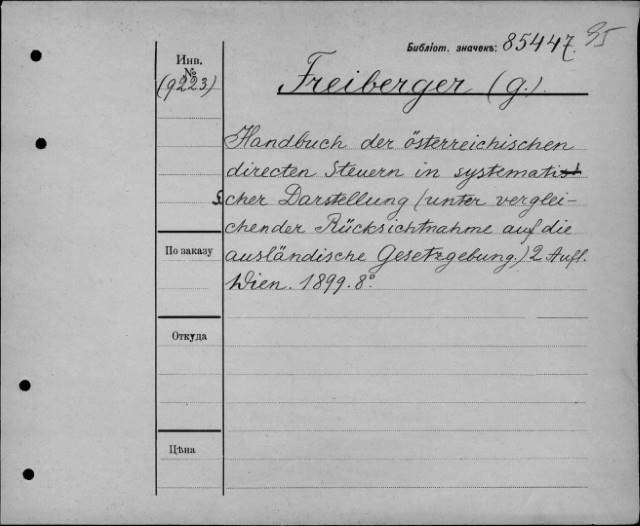 Библіот. значекъ: 85447 95
Инв.
№
(9223)
Freiberger (G.).
Handbuch der österreichischen
directen Steuern in systemati
scher Darstellung (unter verglei-
chender Rücksichtnahme auf die
ausländische Gesetzgebung.) 2 Aufl.
Wien. 1899. 8°
По заказу
Откуда
Цѣна